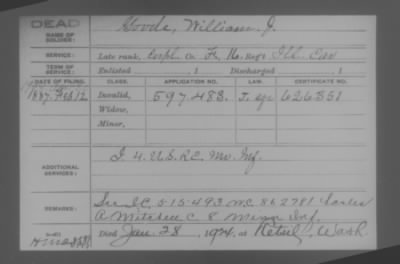 DEAD
NAME OF SOLDIER:
Goode, William J.
SERVICE:
Late rank, Corpl. Co. F, 16 Reg't Ill. Cav
TERM OF SERVICE:
Enlisted , 1 Discharged , 1
DATE OF FILING. CLASS. APPLICATION NO. LAW. CERTIFICATE NO.
1887, Feb 12 Invalid, 597.483. 626351
Widow,
Minor,
ADDITIONAL SERVICES:
I. 4. U.S.R.C. Mo. Inf.
REMARKS:
C. 515.493 862781 Charles
A C 8 Inf.
Died Jan. 28, 1924, at Wash.